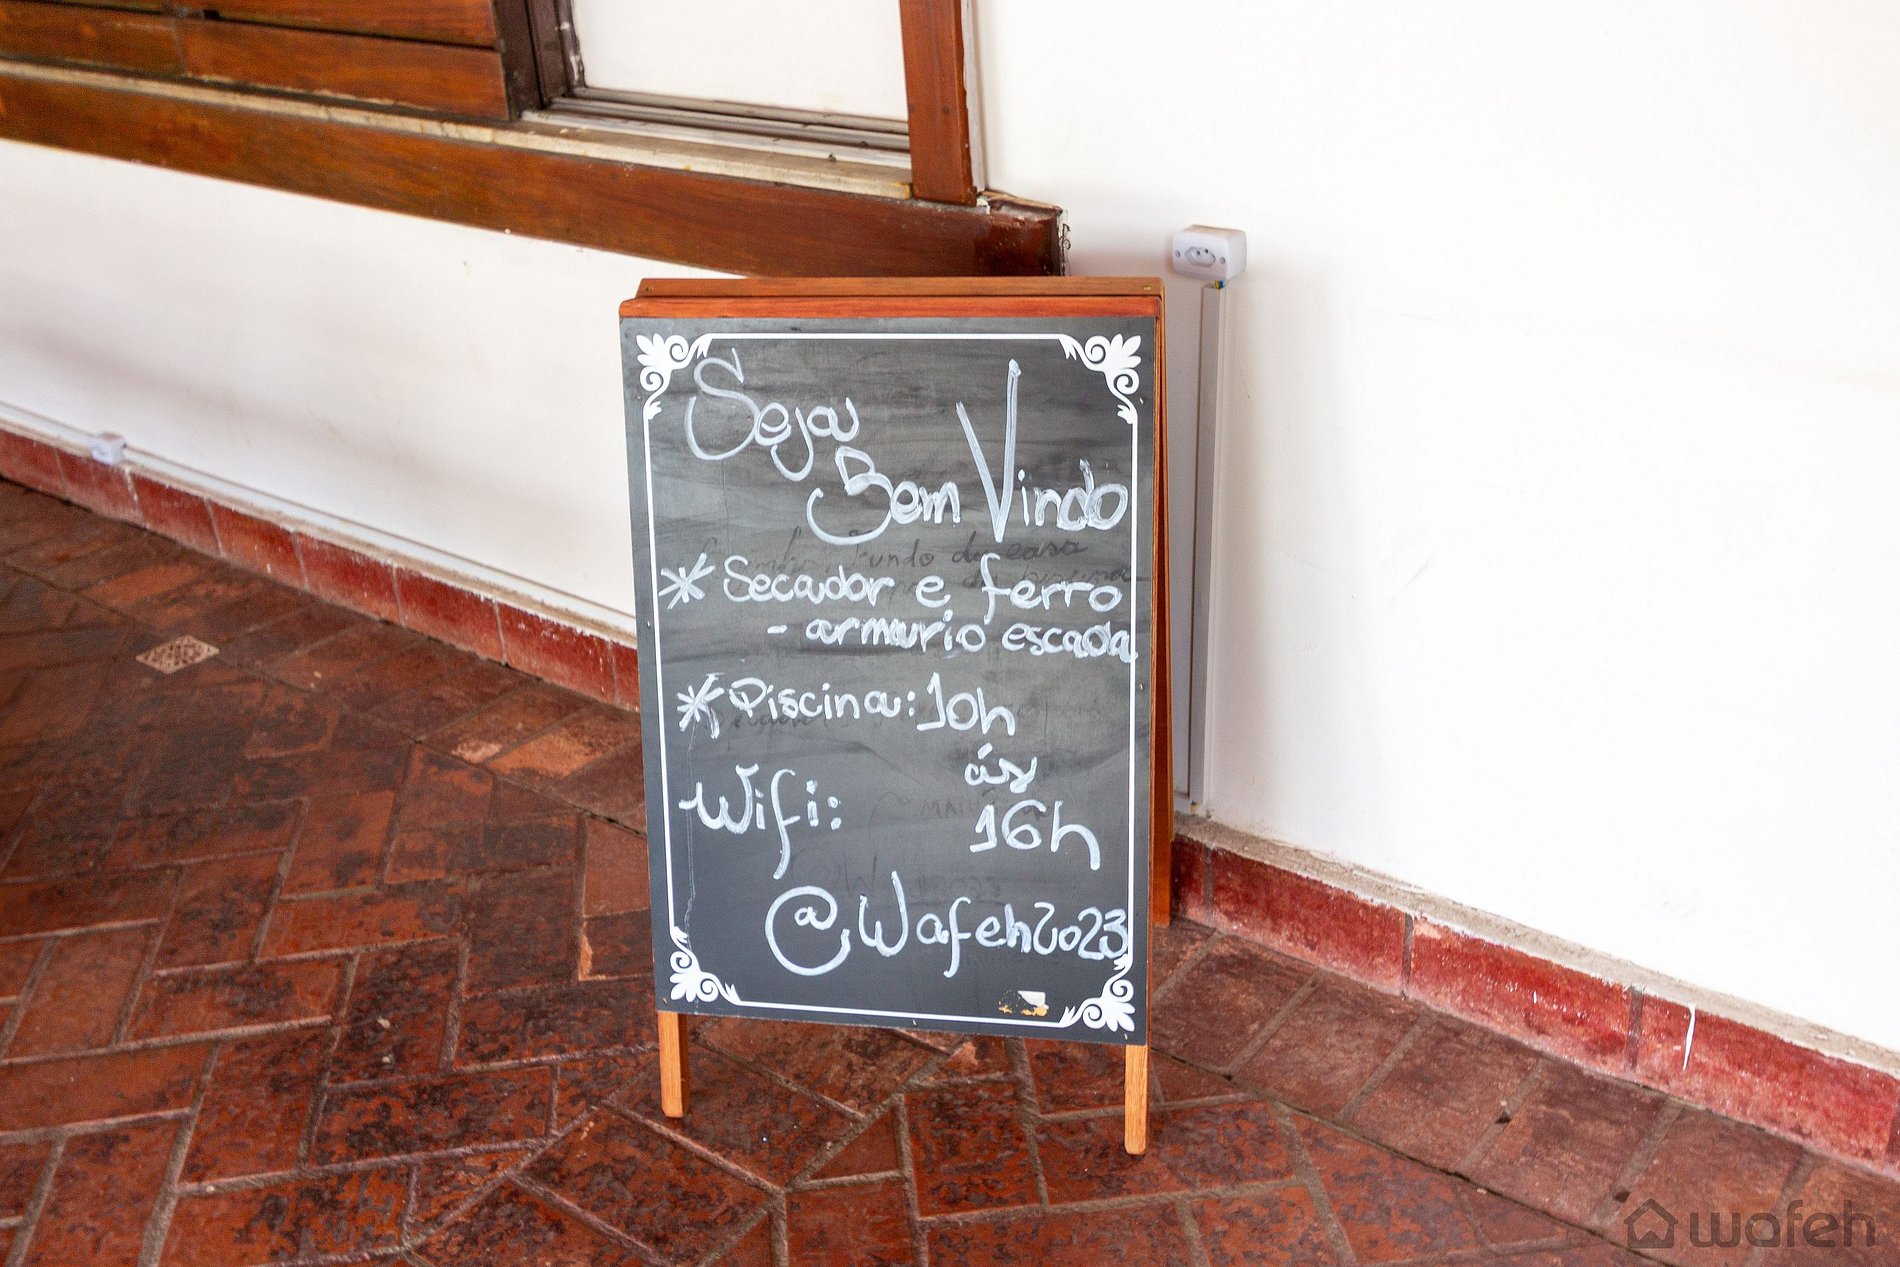 Seja
Bem Vindo
* Secador e ferro
- armário escada
* Piscina: 10h
ás
16h
Wifi:
@Wafeh2023
wafeh